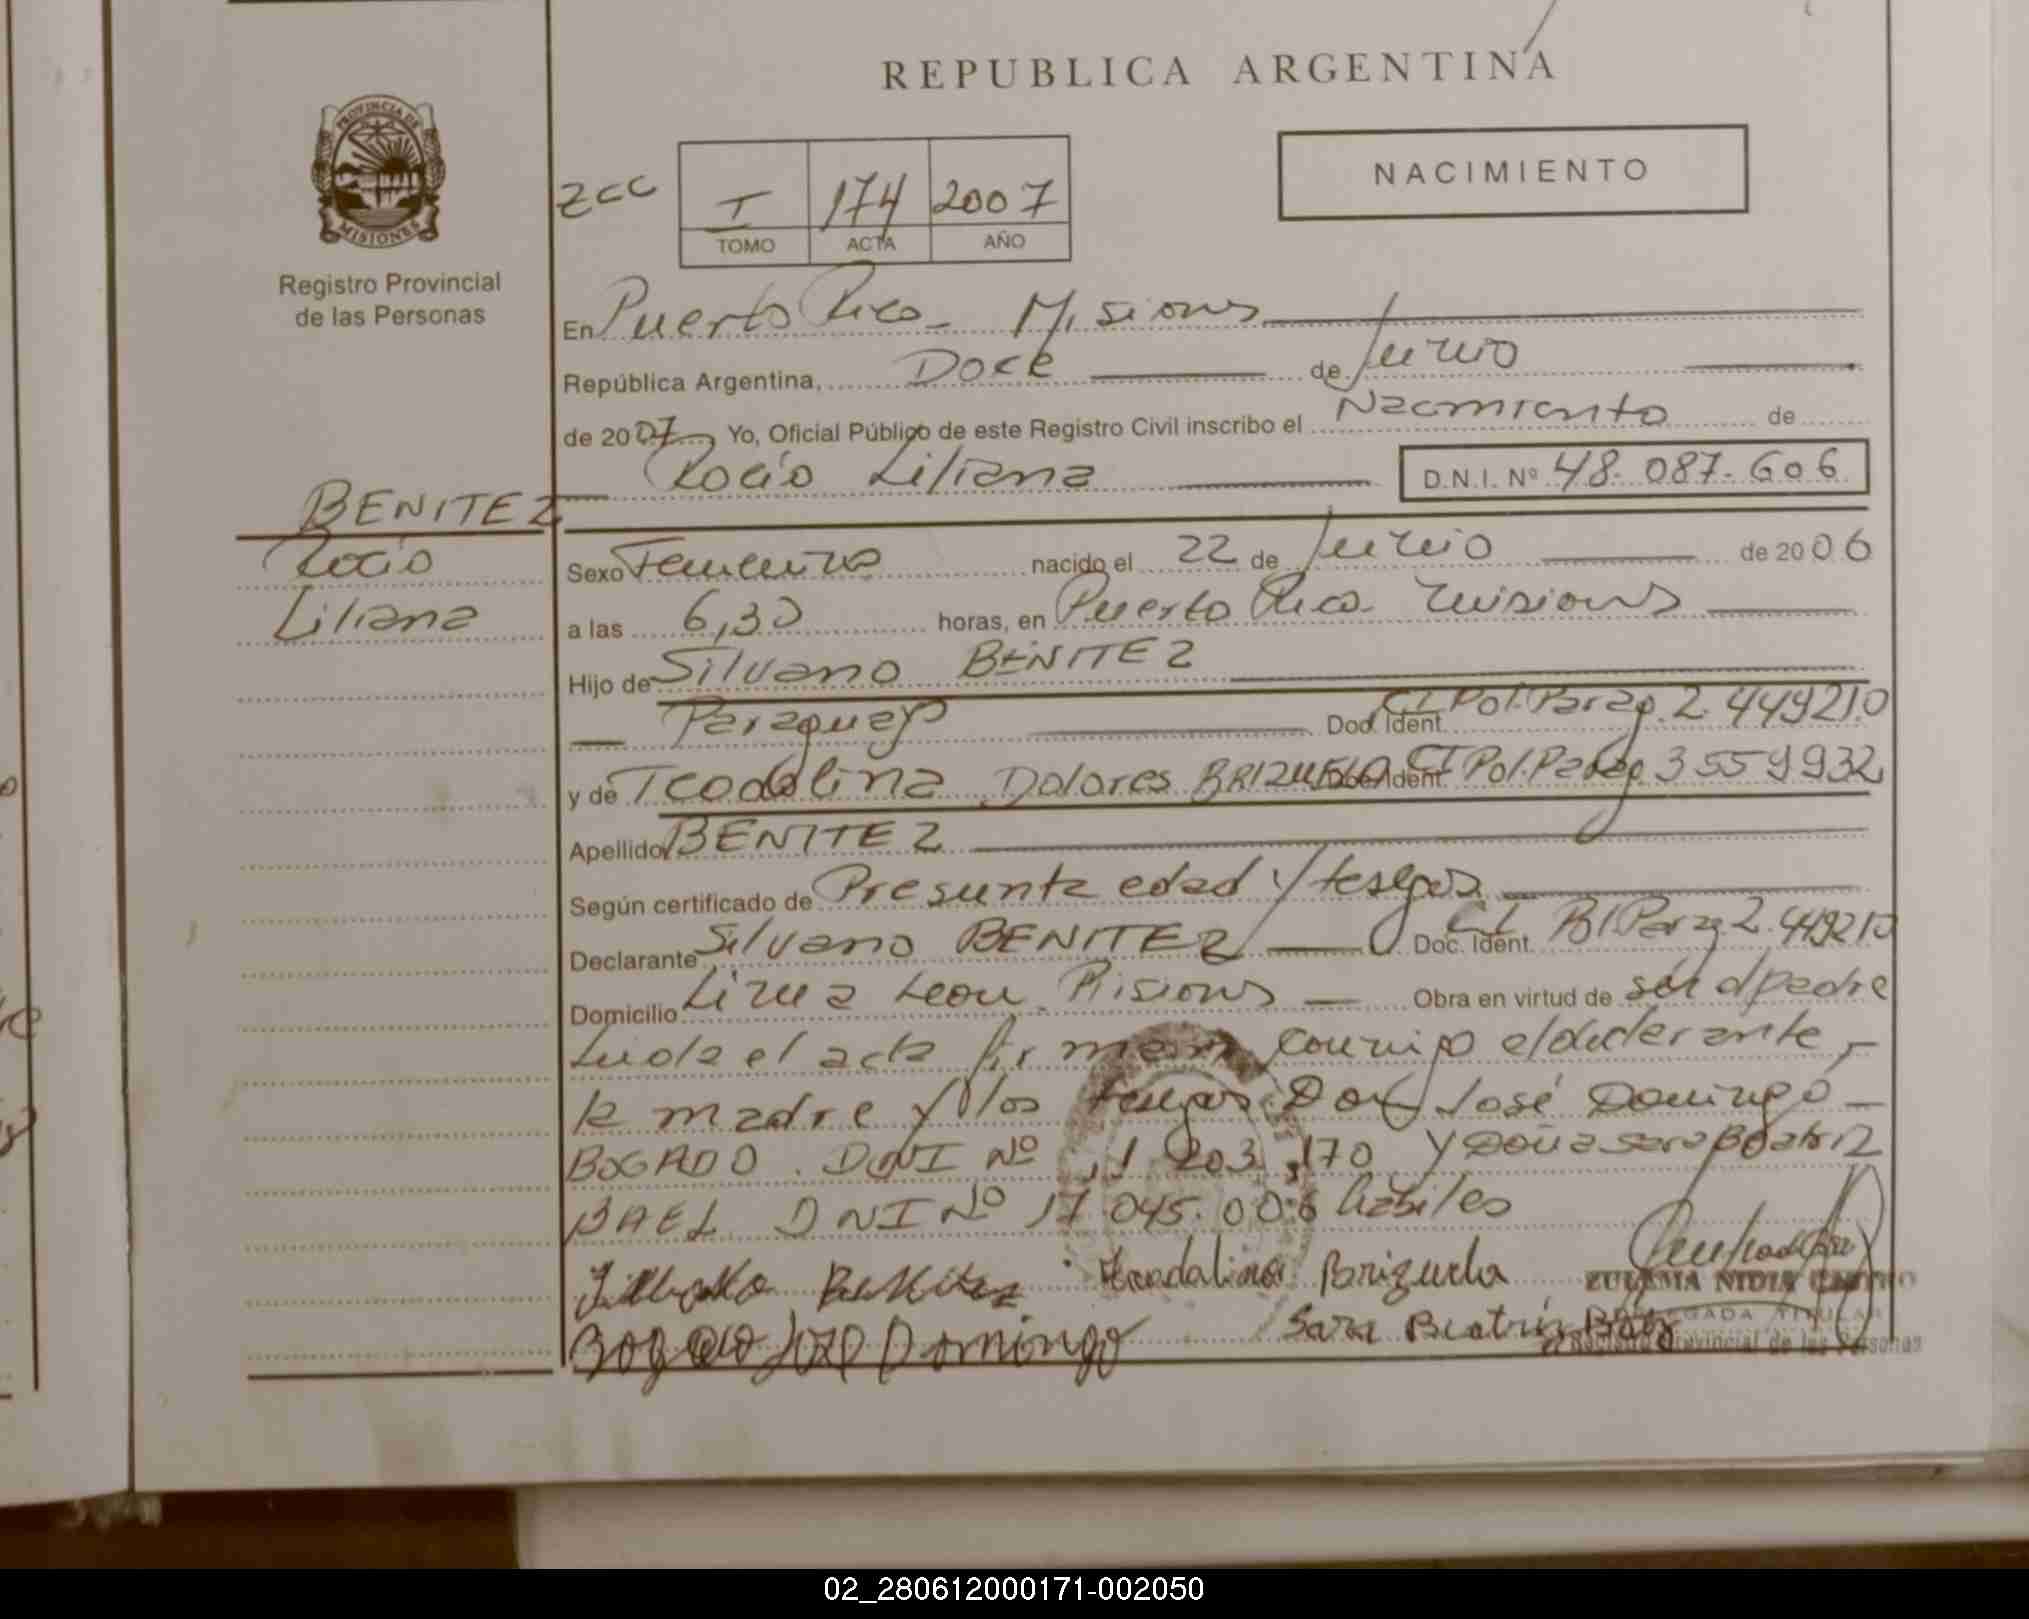 REPUBLICA ARGENTINA
PROVINCIA DE
MISIONES
Registro Provincial
de las Personas
NACIMIENTO
I 174 2007
TOMO ACTA AÑO
En Puerto Rico - Misiones
República Argentina, Doce de Junio
de 2007 Yo, Oficial Público de este Registro Civil inscribo el Nacimiento de
Rocío Liliana D.N.I. Nº 48.087.606
BENITEZ
Rocío
Liliana
Sexo Femenino nacido el 22 de Junio de 2006
a las 6,30 horas, en Puerto Rico Misiones
Hijo de Silvano BENITEZ
Paraguay Doc. Ident. CI Pol. Parag. 2.449210
y de Teodolina Dolores BRIZUELA Doc. Ident. CI Pol. Parag 3559932
Apellido BENITEZ
Según certificado de Presunta edad y testigos
Declarante Silvano BENITEZ Doc. Ident. CI Pol Parag 2.449210
Domicilio Leon Misiones Obra en virtud de ser el padre
Leida el acta firman conmigo el declarante,
la madre y los testigos Don José Domingo
BOGADO DNI Nº 11 203.170 y Doña Sara Beatriz
BAEZ DNI Nº 17.045.006 habiles
Benitez Teodalina Brizuela
Bogado José Domingo Sara Beatriz Baez
ZULEMA NIDIA CASTRO
DELEGADA TITULAR
Registro Provincial de las Personas
02_280612000171-002050